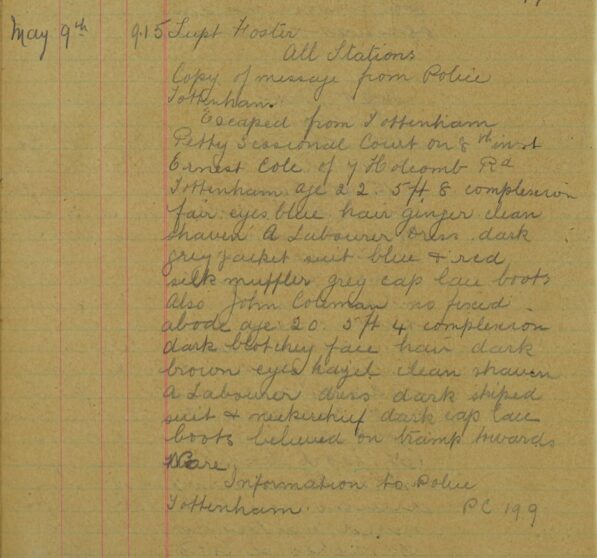 May 9th 9.15 Supt Foster
All Stations
Copy of message from Police
Tottenham
Escaped from Tottenham
Petty Sessional Court on 8th inst
Ernest Cole of 7 Holcomb Rd
Tottenham age 22 5ft 8 complexion
fair eyes blue hair ginger clean
shaven A Labourer Dress dark
grey jacket suit blue & red
silk muffler grey cap lace boots
Also John Coleman no fixed
abode age 20 5ft 4 complexion
dark blotchey face hair dark
brown eyes hazel clean shaven
A Labourer dress dark striped
suit & neckerchief dark cap lace
boots believed on tramp towards
Ware
Information to Police
Tottenham PC 199